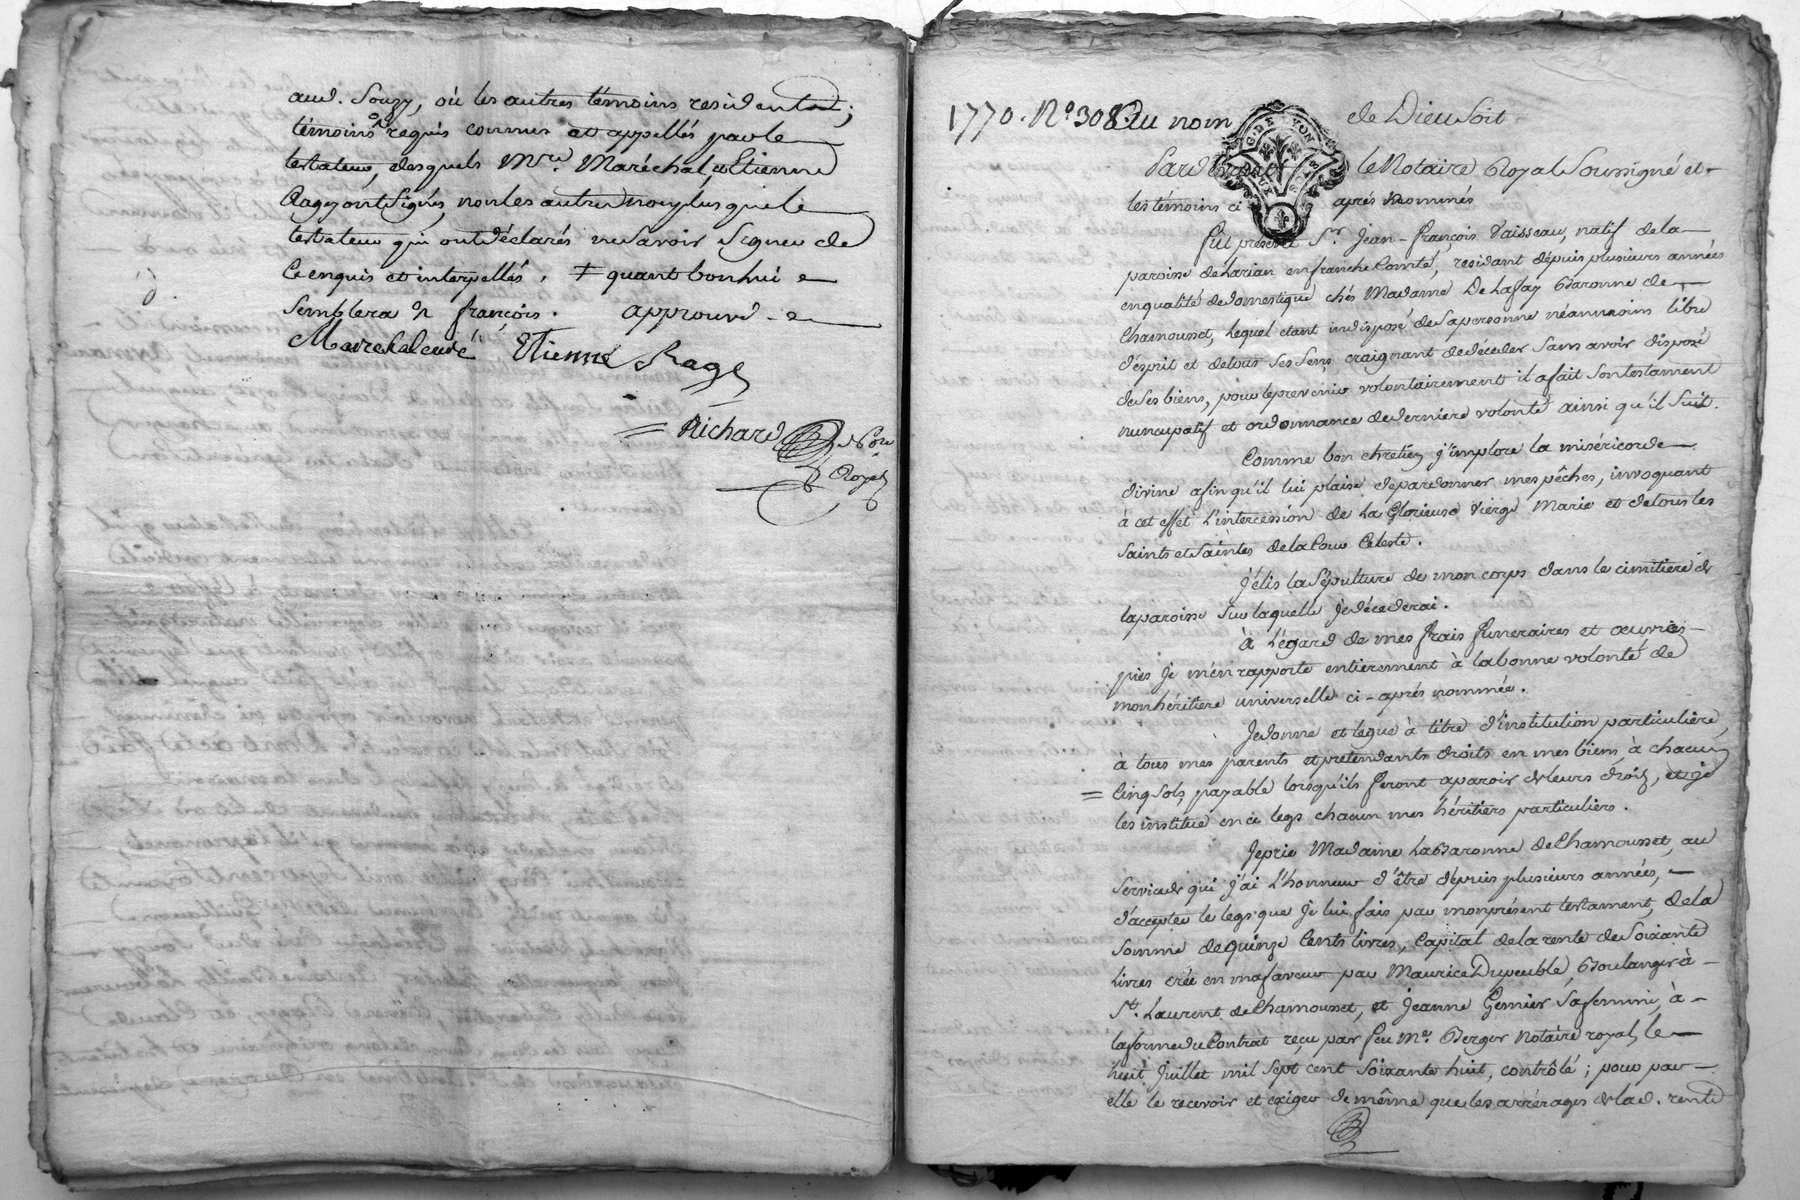 aud. Souzy, où les autres témoins resident aud.;
témoins requis connus et appellés par le
testateur, desquels Mre. Maréchal et Etienne
Ragey ont Signés, non les autres non plus que le
testateur qui ont déclarés ne savoir Signer de
ce enquis et interpellés. ‡ quant bon lui
Semblera ‡ françois. approuvé
Marechal curé Etienne Rage
Richard Nore
Royal
1770. No. 308. Au nom de Dieu Soit
G. DE LYON
Pardevant le Notaire Royal Soussigné et
les témoins ci après nommés
fut présent Sr. Jean-françois Vaisseau, natif de la
paroisse de Larian en franche Comté, residant dépuis plusieurs années
en qualité de domestique chés Madame De Lafay Baronne de
Chamousset, lequel etant indisposé de sa personne néanmoins libre
d'ésprit et de tous ses Sens craignant de décéder Sans avoir disposé
de Ses biens, pour le prevenir volontairement il a fait Son testament
nuncupatif et ordonnance de derniere volonté ainsi qu'il Suit.
Comme bon chretien j'implore la miséricorde
divine afin qu'il lui plaise de pardonner mes pêches, invoquant
à cet effet L'intercession de La Glorieuse Vierge Marie et de tous les
Saints et Saintes de la Cour Celeste.
J'élis la Sépulture de mon corps dans le cimitiere de
la paroisse Sur laquelle je décéderai.
à L'égard de mes frais funeraires et œuvres
pies je m'en rapporte entièrement à la bonne volonté de
mon héritiere universelle ci-aprés nommée.
Je donne et legue à titre d'institution particulière,
à tous mes parents et prétendants droits en mes biens à chacun
= Cinq Sols, payable lorsqu'ils feront aparoir de leurs droits, et je
les institue en ce legs chacun mes héritiers particuliers.
Je prie Madame La Baronne de Chamousset, au
Service de qui j'ai L'honneur d'être dépuis plusieurs années,
d'accepter le legs que je lui fais par mon présent testament, de la
Somme de quinze Cents livres, Capital de la rente de Soixante
Livres créé en ma faveur par Maurice Dupeuble, Boulanger à
St. Laurent de Chamousset, et Jeanne Gernier Sa femme, à
la forme du Contrat reçu par feu Me. Berger Notaire royal, le
huit Juillet mil Sept cent Soixante huit, contrôlé; pour par
elle le recevoir et exiger de même que les arrérages de lad. rente